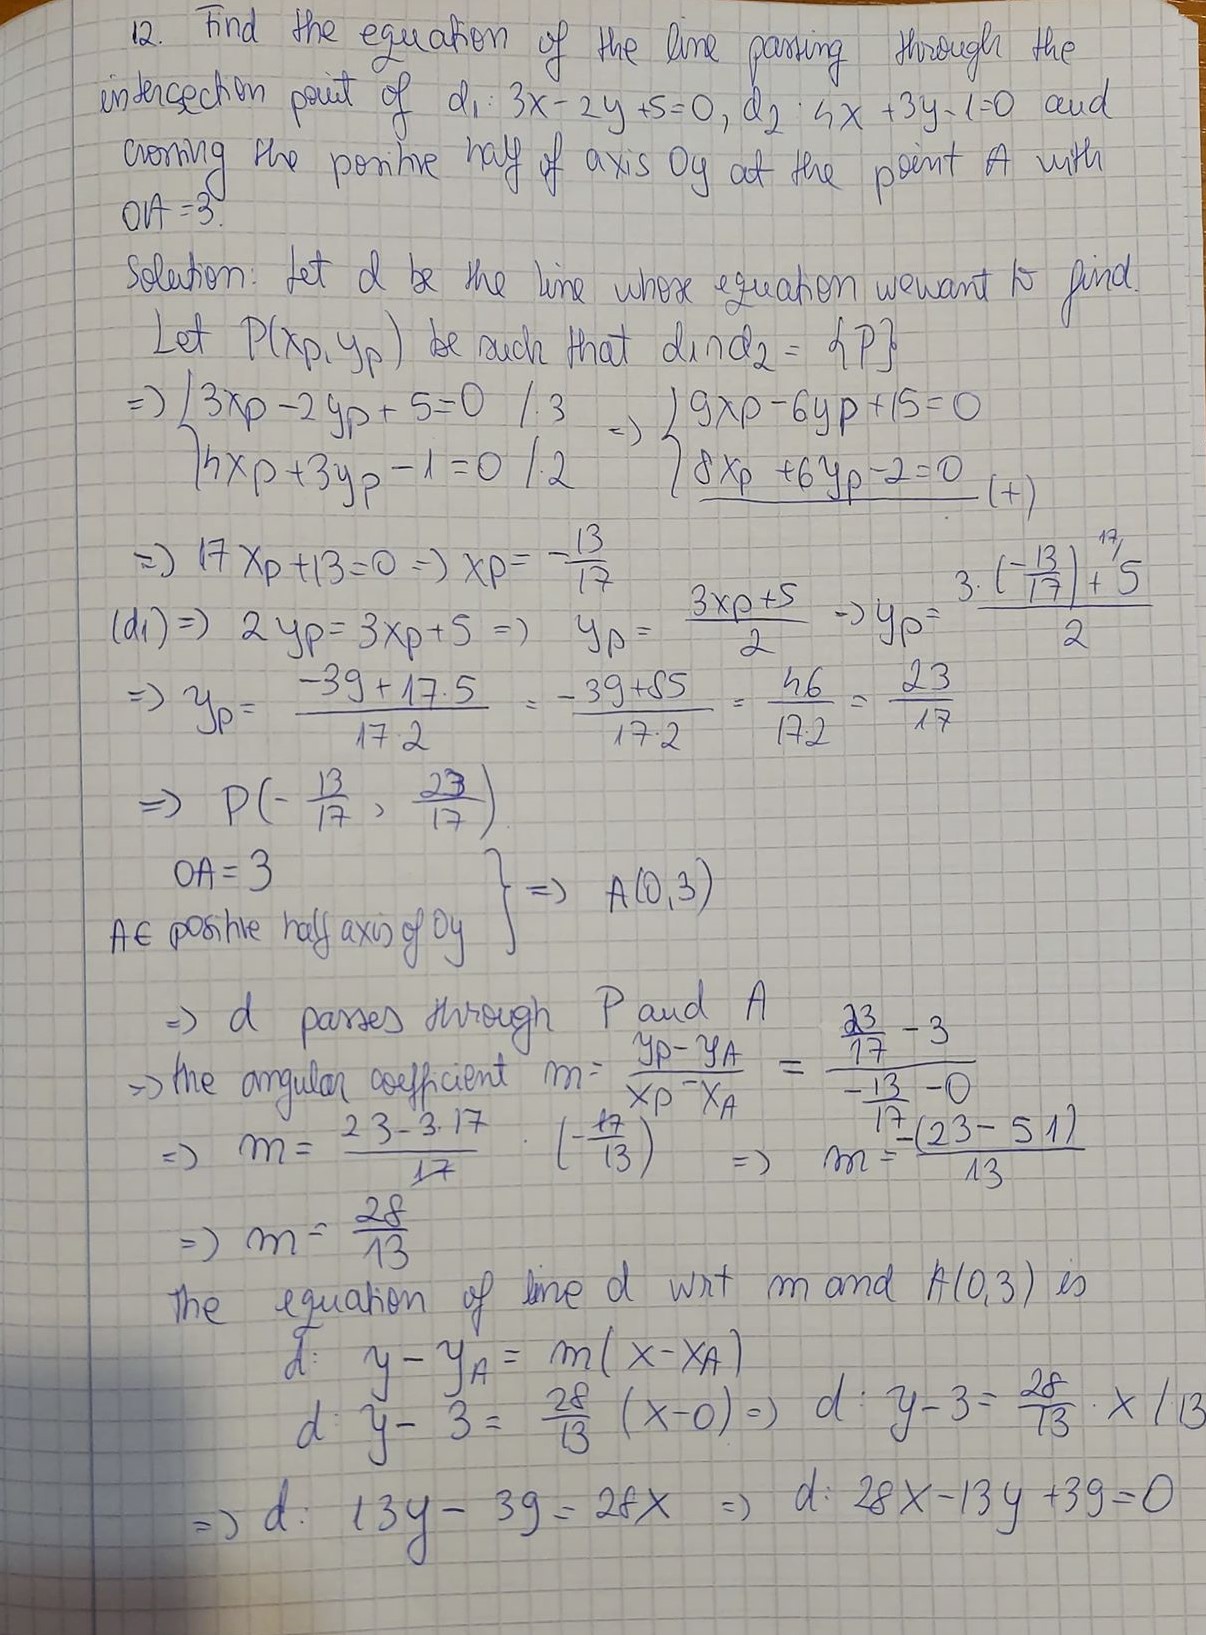 12. Find the equation of the line passing through the
intersection point of d₁: 3x-2y+5=0, d₂: 4x+3y-1=0 and
crossing the positive half of axis Oy at the point A with
OA=3.
Solution: Let d be the line whose equation we want to find.
Let P(xp, yp) be such that d₁∩d₂ = {P}
=> { 3xp-2yp+5=0 /·3 => { 9xp-6yp+15=0
4xp+3yp-1=0 /·2 8xp+6yp-2=0 (+)
=> 17xp+13=0 => xp= -13/17
(d₁) => 2yp=3xp+5 => yp= (3xp+5)/2 => yp= (3·(-13/17)+ ¹⁷⁾5)/2
=> yp= (-39+17·5)/(17·2) = (-39+85)/(17·2) = 46/(17·2) = 23/17
=> P(-13/17, 23/17)
OA=3
A∈ positive half axis of Oy } => A(0,3)
=> d passes through P and A
=> the angular coefficient m= (yp-yA)/(xp-xA) = (23/17 -3)/(-13/17 -0)
=> m= (23-3·17)/17 · (-17/13) => m= -(23-51)/13
=> m= 28/13
The equation of line d wrt m and A(0,3) is
d: y-yA = m(x-xA)
d: y-3= 28/13 (x-0) => d: y-3= 28/13 · x /·13
=> d: 13y-39=28x => d: 28x-13y+39=0